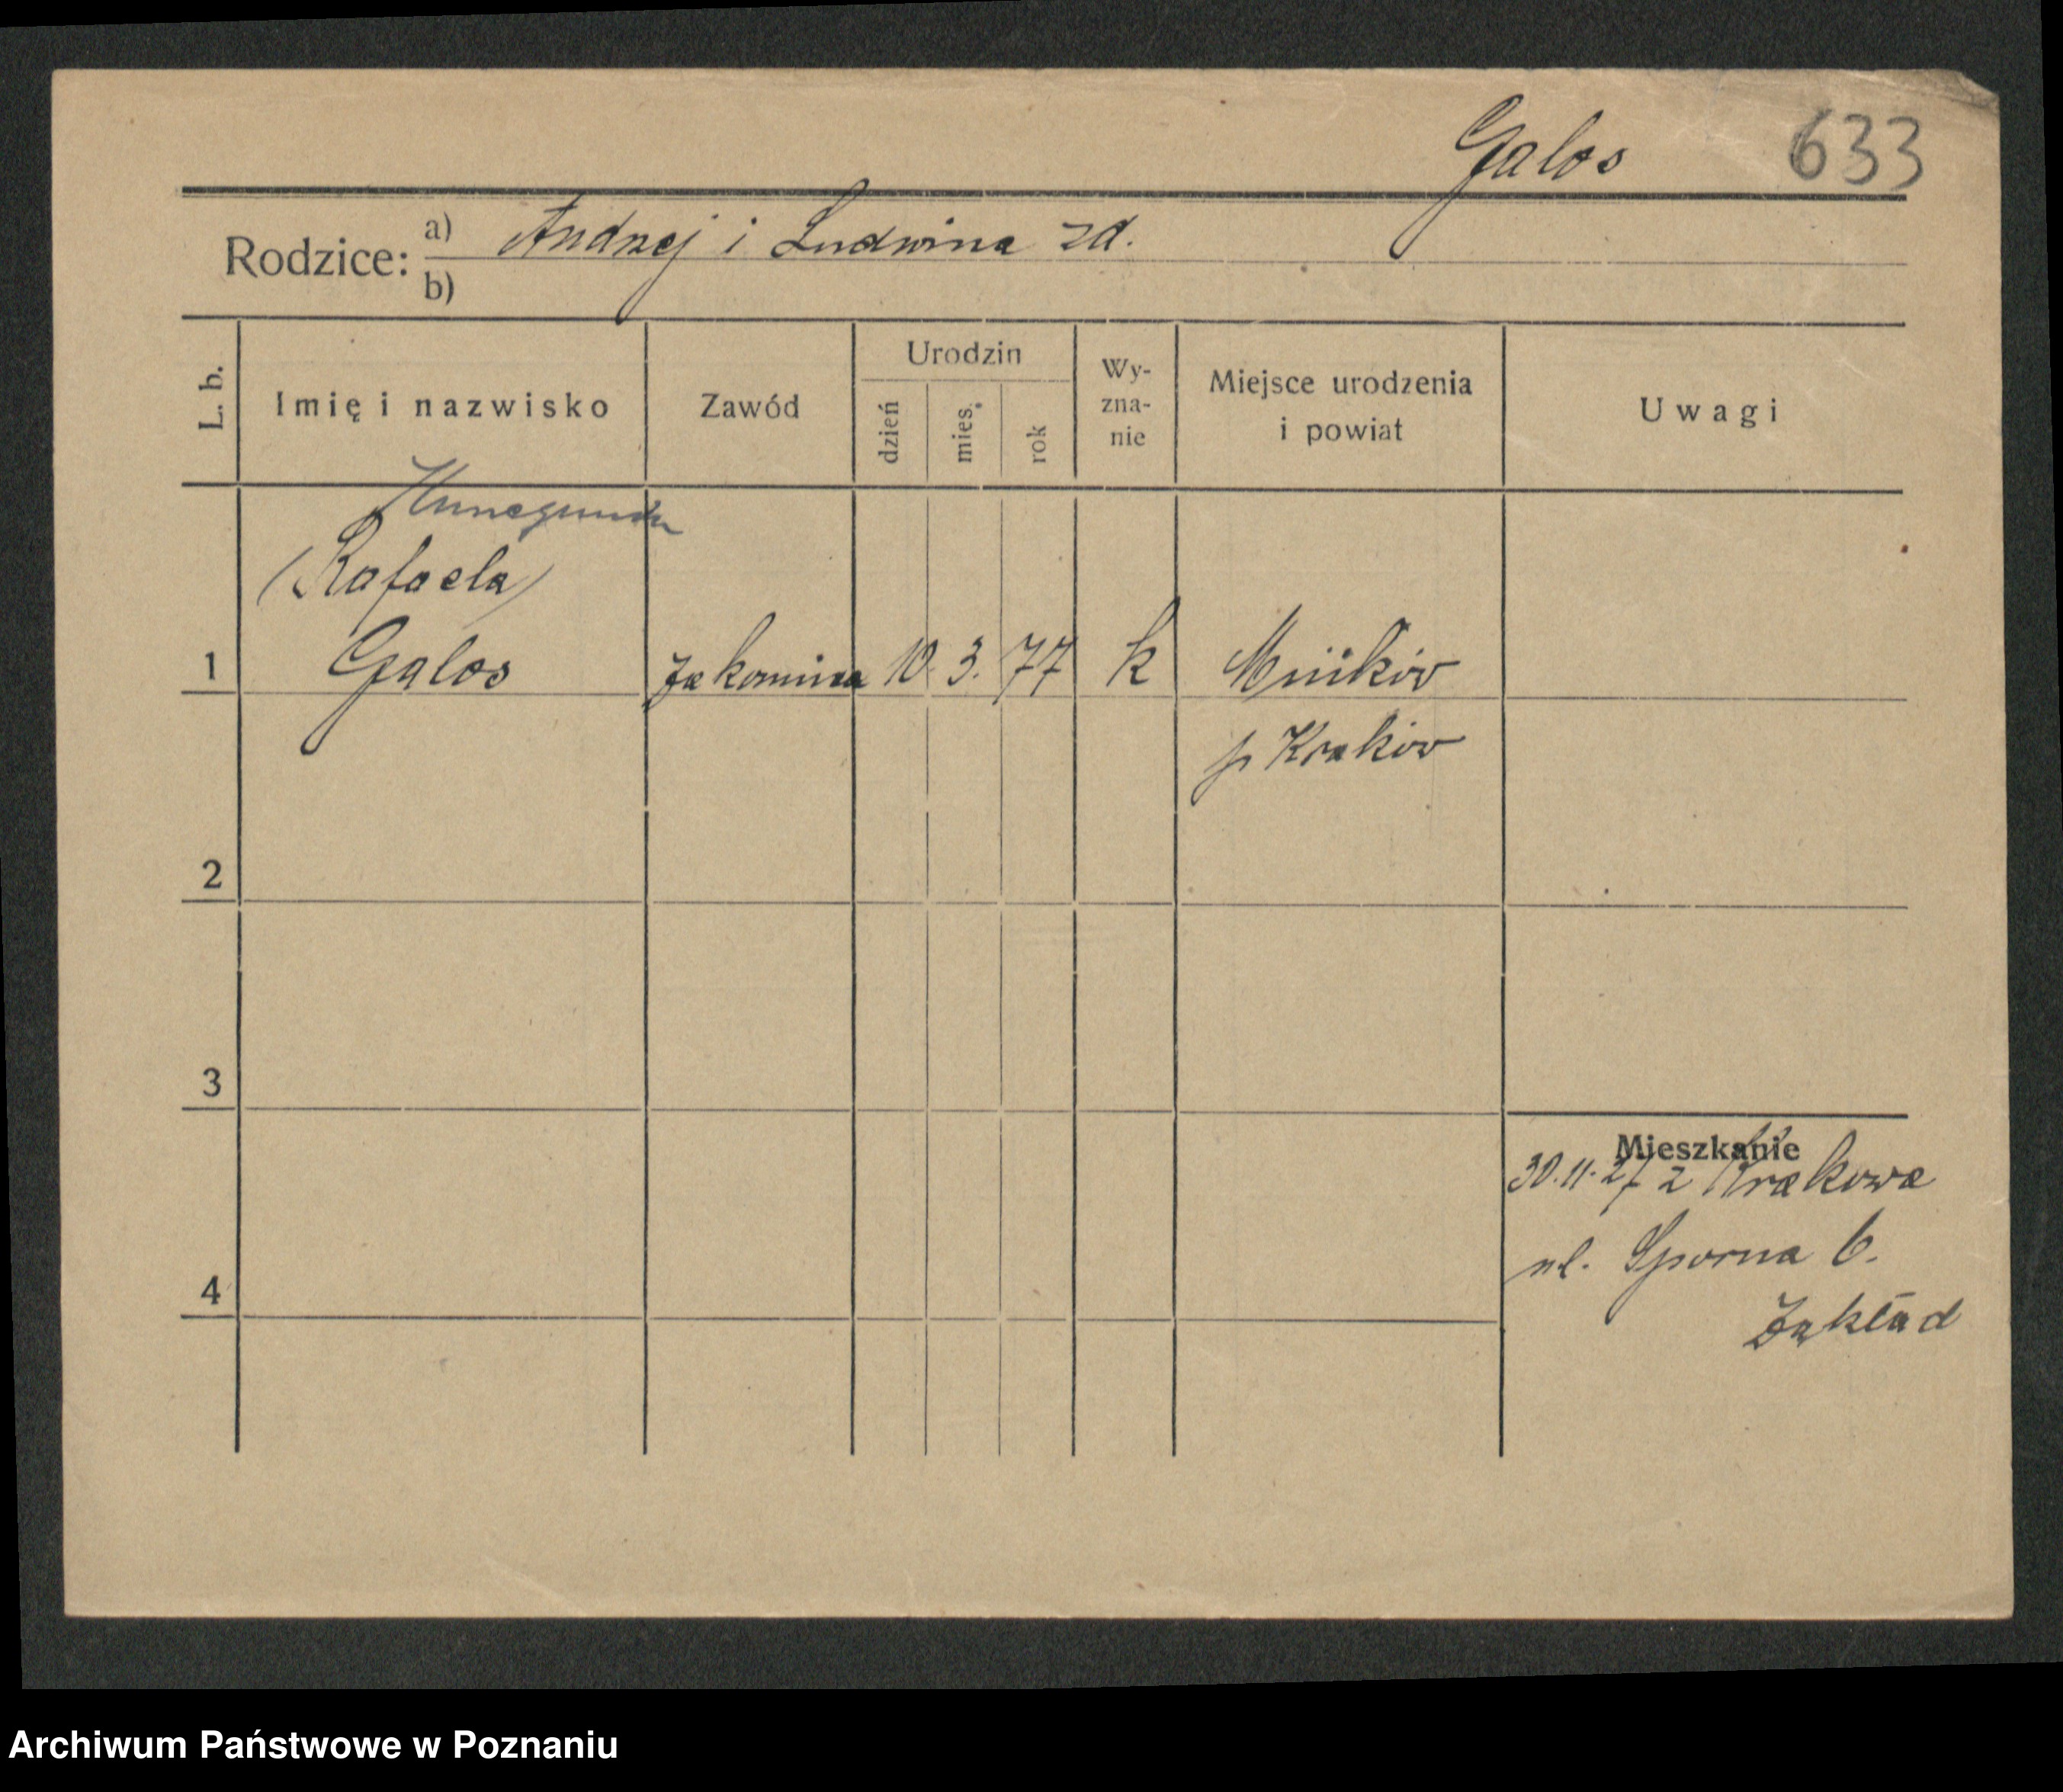 Galos 633
Rodzice: a) Andrzej i Ludwina zd.
b)
L. b. Imię i nazwisko Zawód Urodzin dzień mies. rok Wy-zna-nie Miejsce urodzenia i powiat Uwagi
Kunegunda
(Rafaela)
1 Galos zakonnica 10. 3. 77 k Mników
p Kraków
2
3
Mieszkanie
30.11.27 z Krakowa
ul. Sporna 6.
4 Zakład
Archiwum Państwowe w Poznaniu